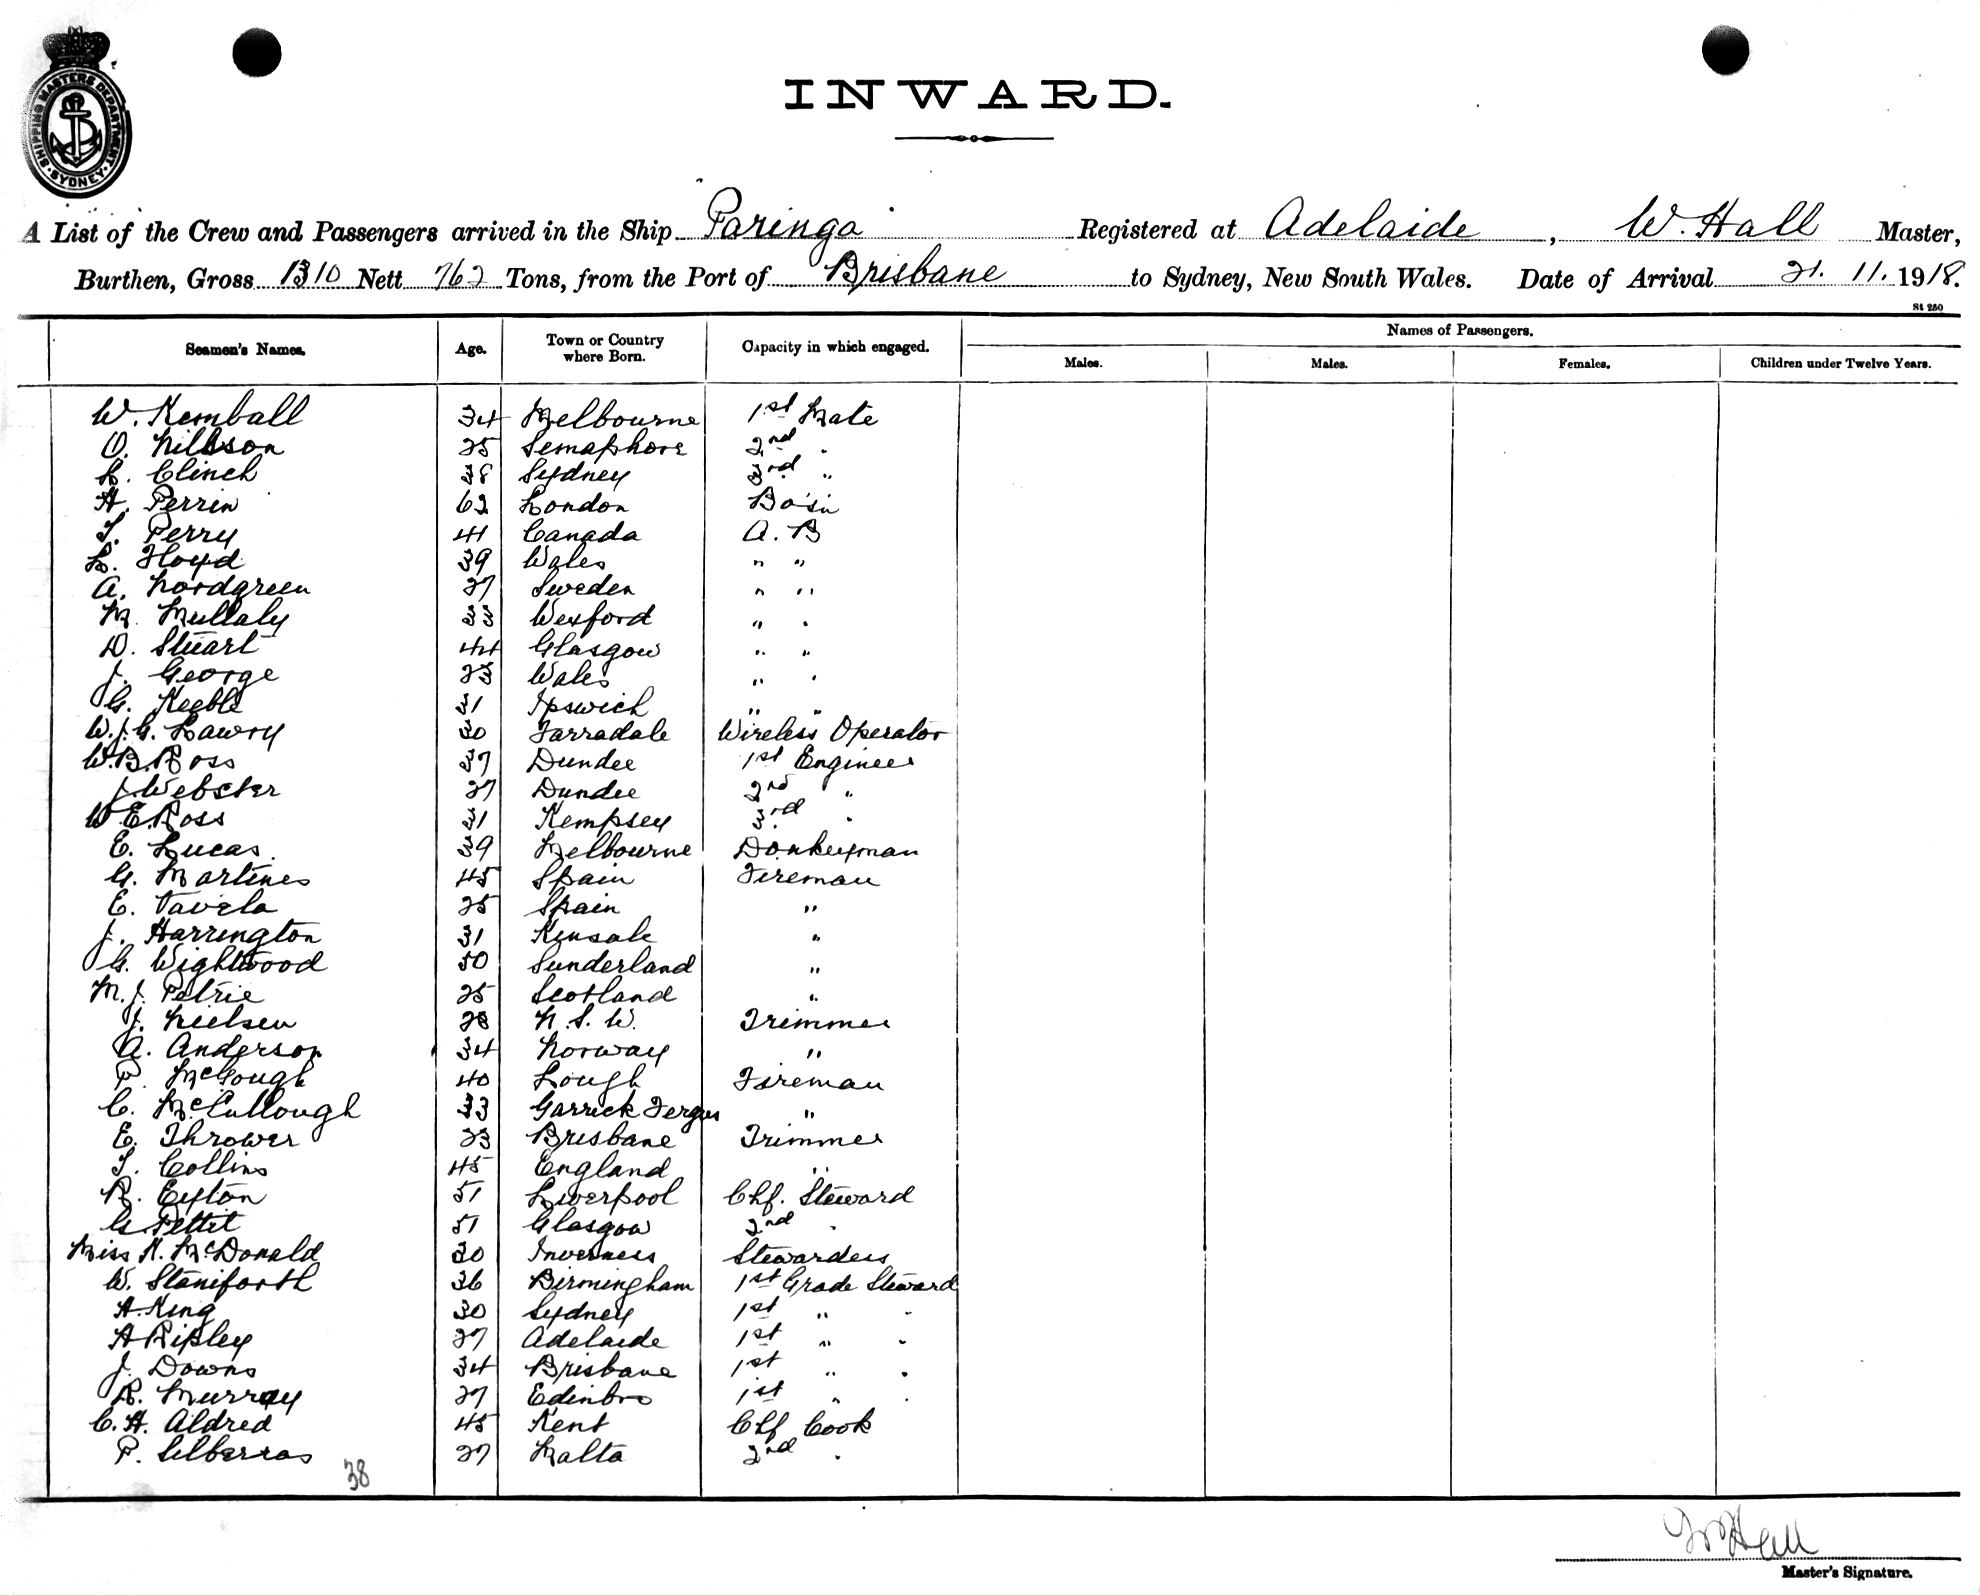 SHIPPING MASTERS DEPARTMENT
SYDNEY
INWARD.
A List of the Crew and Passengers arrived in the Ship Paringa Registered at Adelaide, W. Hall Master,
Burthen, Gross 1310 Nett 762 Tons, from the Port of Brisbane to Sydney, New South Wales. Date of Arrival 21. 11. 1918.
St 250
Seamen's Names. Age. Town or Country where Born. Capacity in which engaged. Names of Passengers.
Males. Males. Females. Children under Twelve Years.
W. Kemball 34 Melbourne 1st Mate
O. Nilsson 25 Semaphore 2nd "
L. Clinch 38 Sydney 3rd "
H. Perrin 62 London Bo'sn
T. Perry 41 Canada A. B
L. Floyd 39 Wales " "
A. Nordgreen 27 Sweden " "
M. Mullaly 33 Wexford " "
D. Stuart 44 Glasgow " "
J. George 23 Wales " "
G. Keeble 31 Ipswich " "
W. J. G. Lawry 30 Tarradale Wireless Operator
W. B. Ross 37 Dundee 1st Engineer
J. Webster 27 Dundee 2nd "
W. E. Ross 31 Kempsey 3rd "
E. Lucas. 39 Melbourne Donkeyman
G. Martines 45 Spain Fireman
E. Tavela 25 Spain "
J. Harrington 31 Kinsale "
G. Wightwood 50 Sunderland "
M. J. Petrie 25 Scotland "
J. Nielsen N. S. W. Trimmer
A. Anderson 34 Norway "
P. McGough 40 Lough Fireman
C. McCullough 33 Garrick Fergus "
E. Thrower 23 Brisbane Trimmer
T. Collins 45 England "
R. Eyton 51 Liverpool Chf. Steward
G. Pettit 51 Glasgow 2nd "
Miss K. McDonald 30 Inverness Stewardess
W. Staniforth 36 Birmingham 1st Grade Steward
A. King 30 Sydney 1st " "
A Ripley 27 Adelaide 1st " "
J. Downs 34 Brisbane 1st " "
R. Murray 27 Edinbro 1st " "
C. H. Aldred 45 Kent Chf Cook
P. 27 Malta 2nd "
38
W Hall
Master's Signature.